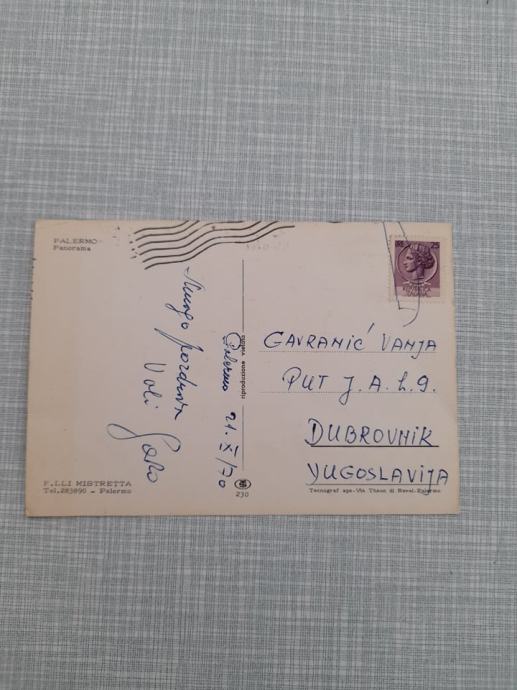 PALERMO
Panorama
25
Mnogo pozdrava
Voli
Palermo 21. XI/70
GAVRANIĆ VANJA
PUT J.A. 49.
DUBROVNIK
YUGOSLAVIJA
riproduzione vietata
F.LLI MISTRETTA
Tel. 283890 - Palermo
230
Tecnograf spa-Via Thaon di Revel-Palermo